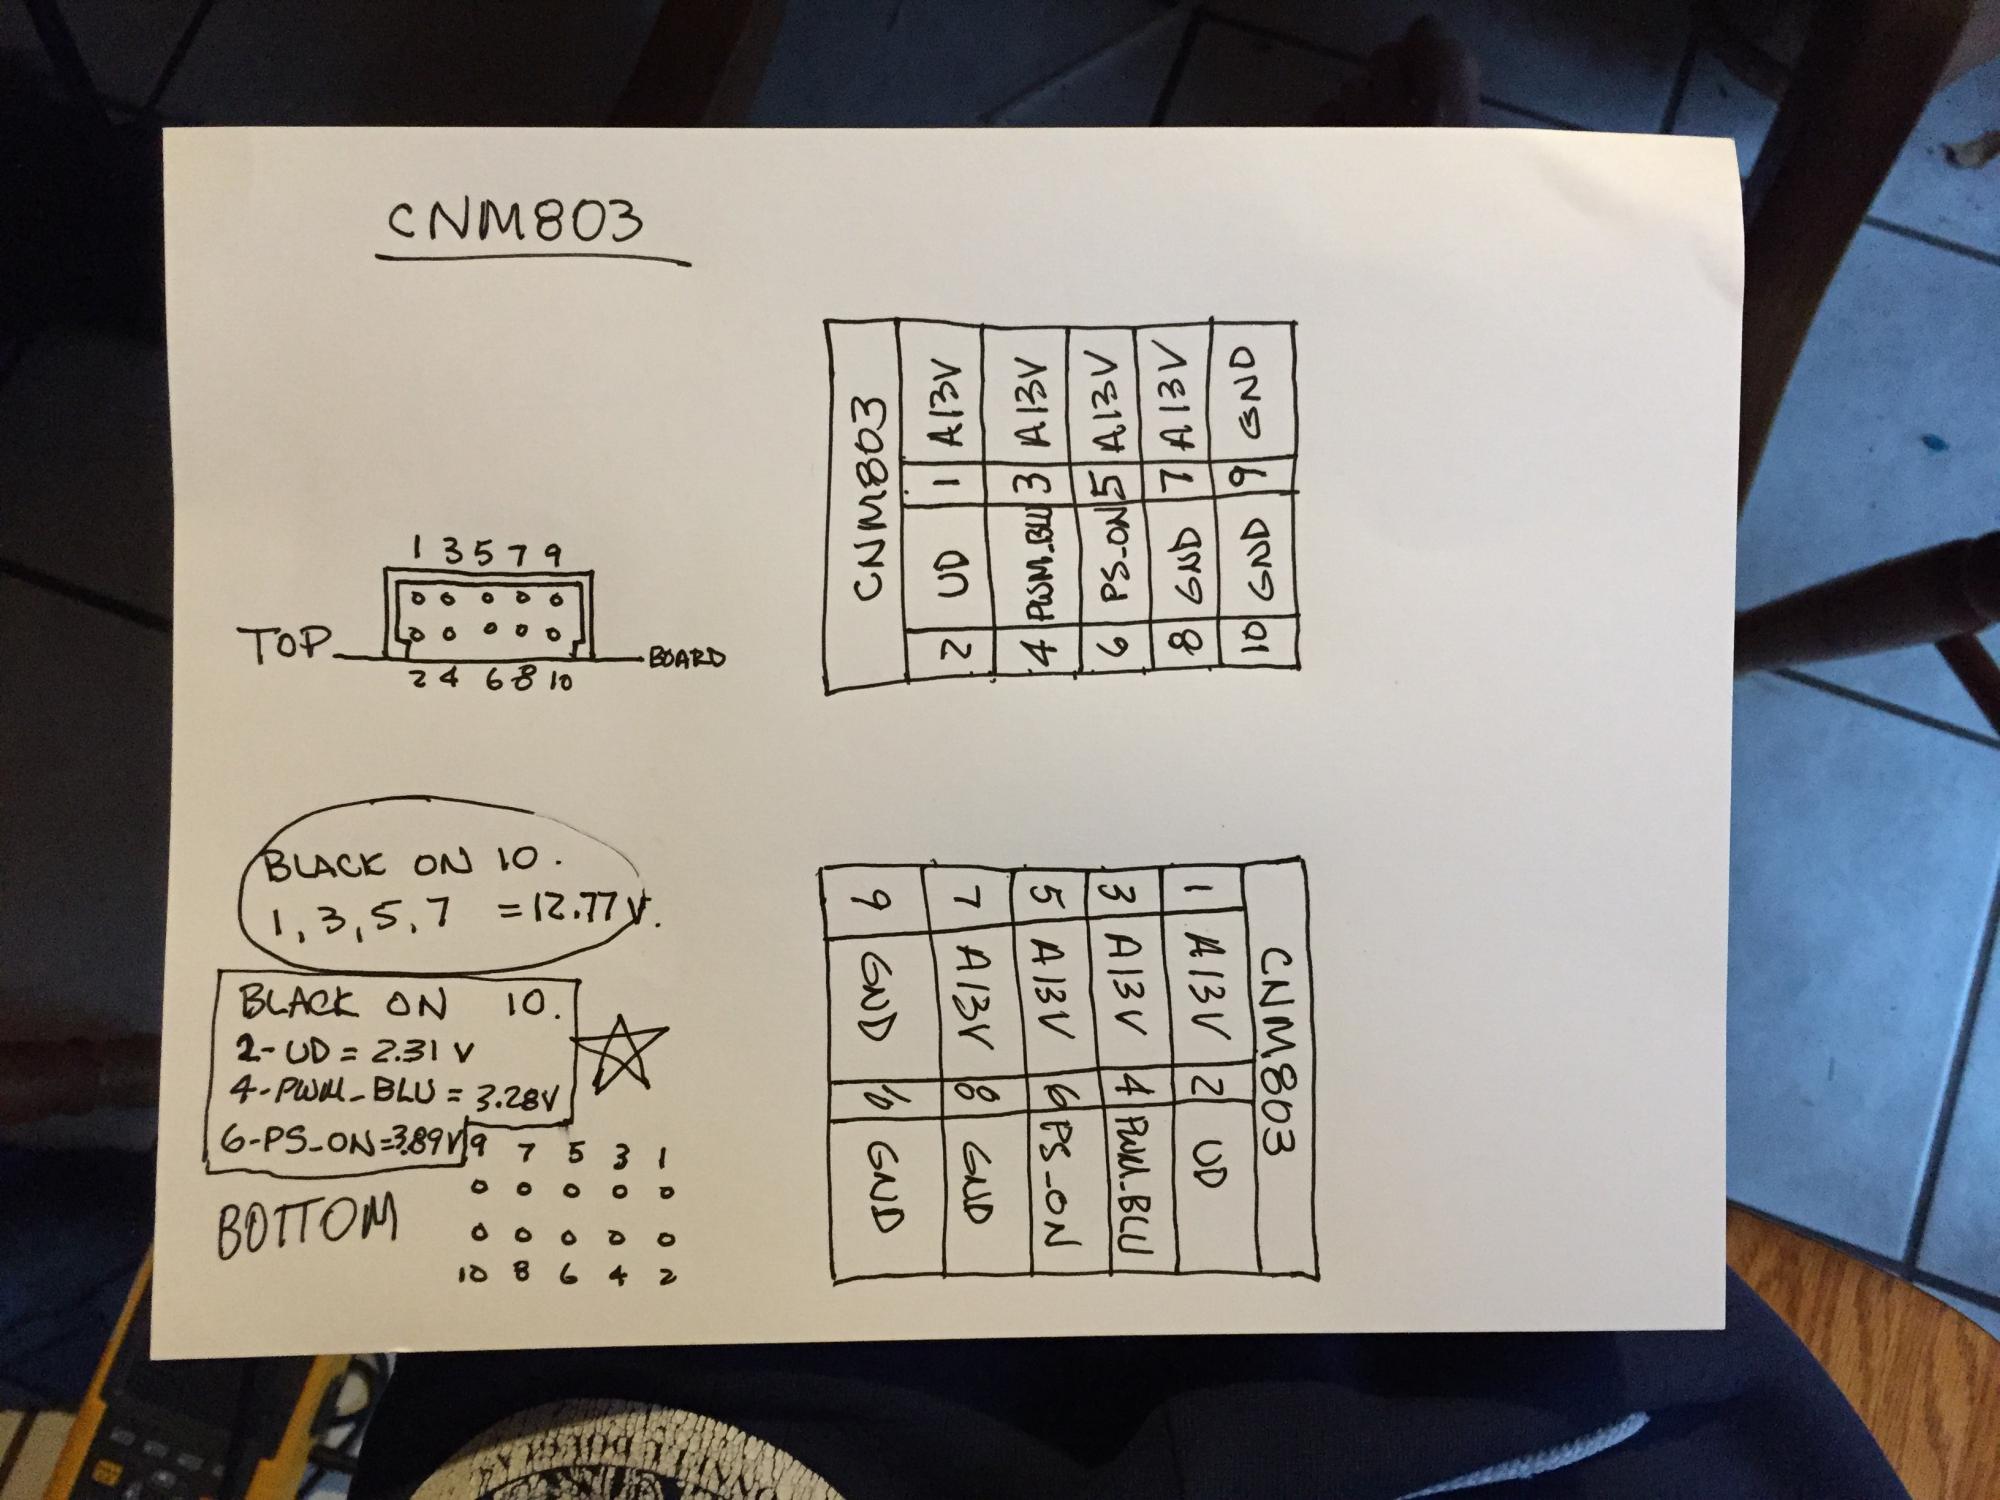 CNM803
CNM803
1 A13V
2 UD
3 A13V
4 PWM_BLU
5 A13V
6 PS_ON
7 A13V
8 GND
9 GND
10 GND
1 3 5 7 9
TOP
BOARD
2 4 6 8 10
BLACK ON 10.
1, 3, 5, 7 = 12.77 V.
BLACK ON 10.
2-UD = 2.31 V
4-PWM_BLU = 3.28V
6-PS_ON=3.89V
BOTTOM
9 7 5 3 1
10 8 6 4 2
CNM803
1 A13V 2 UD
3 A13V 4 PWM_BLU
5 A13V 6 PS_ON
7 A13V 8 GND
9 GND 10 GND